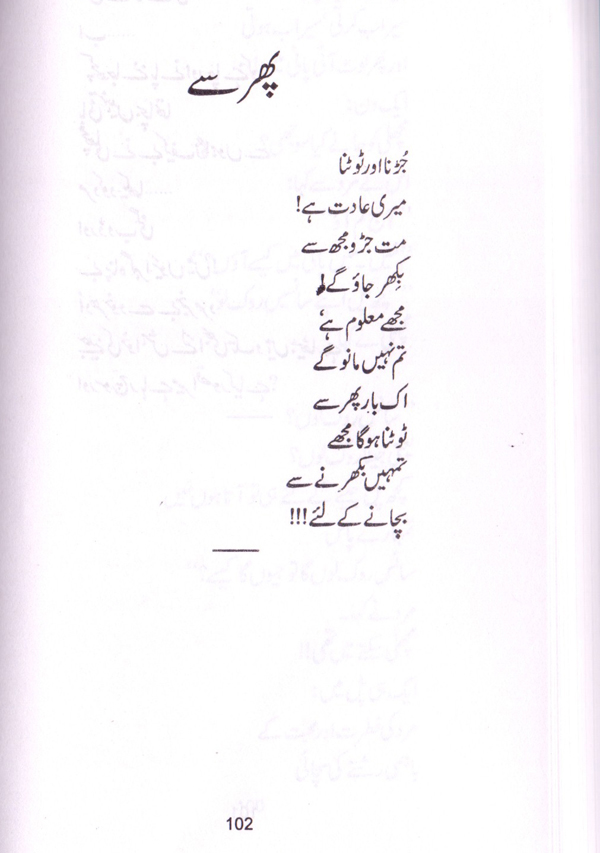 پھر سے
جُڑنا اور ٹوٹنا
میری عادت ہے!
مت جڑو مجھ سے
بِکھر جاؤ گے!
مجھے معلوم ہے
تم نہیں مانو گے
اک بار پھر سے
ٹوٹنا ہوگا مجھے
تمہیں بکھرنے سے
بچانے کے لئے!!!
102